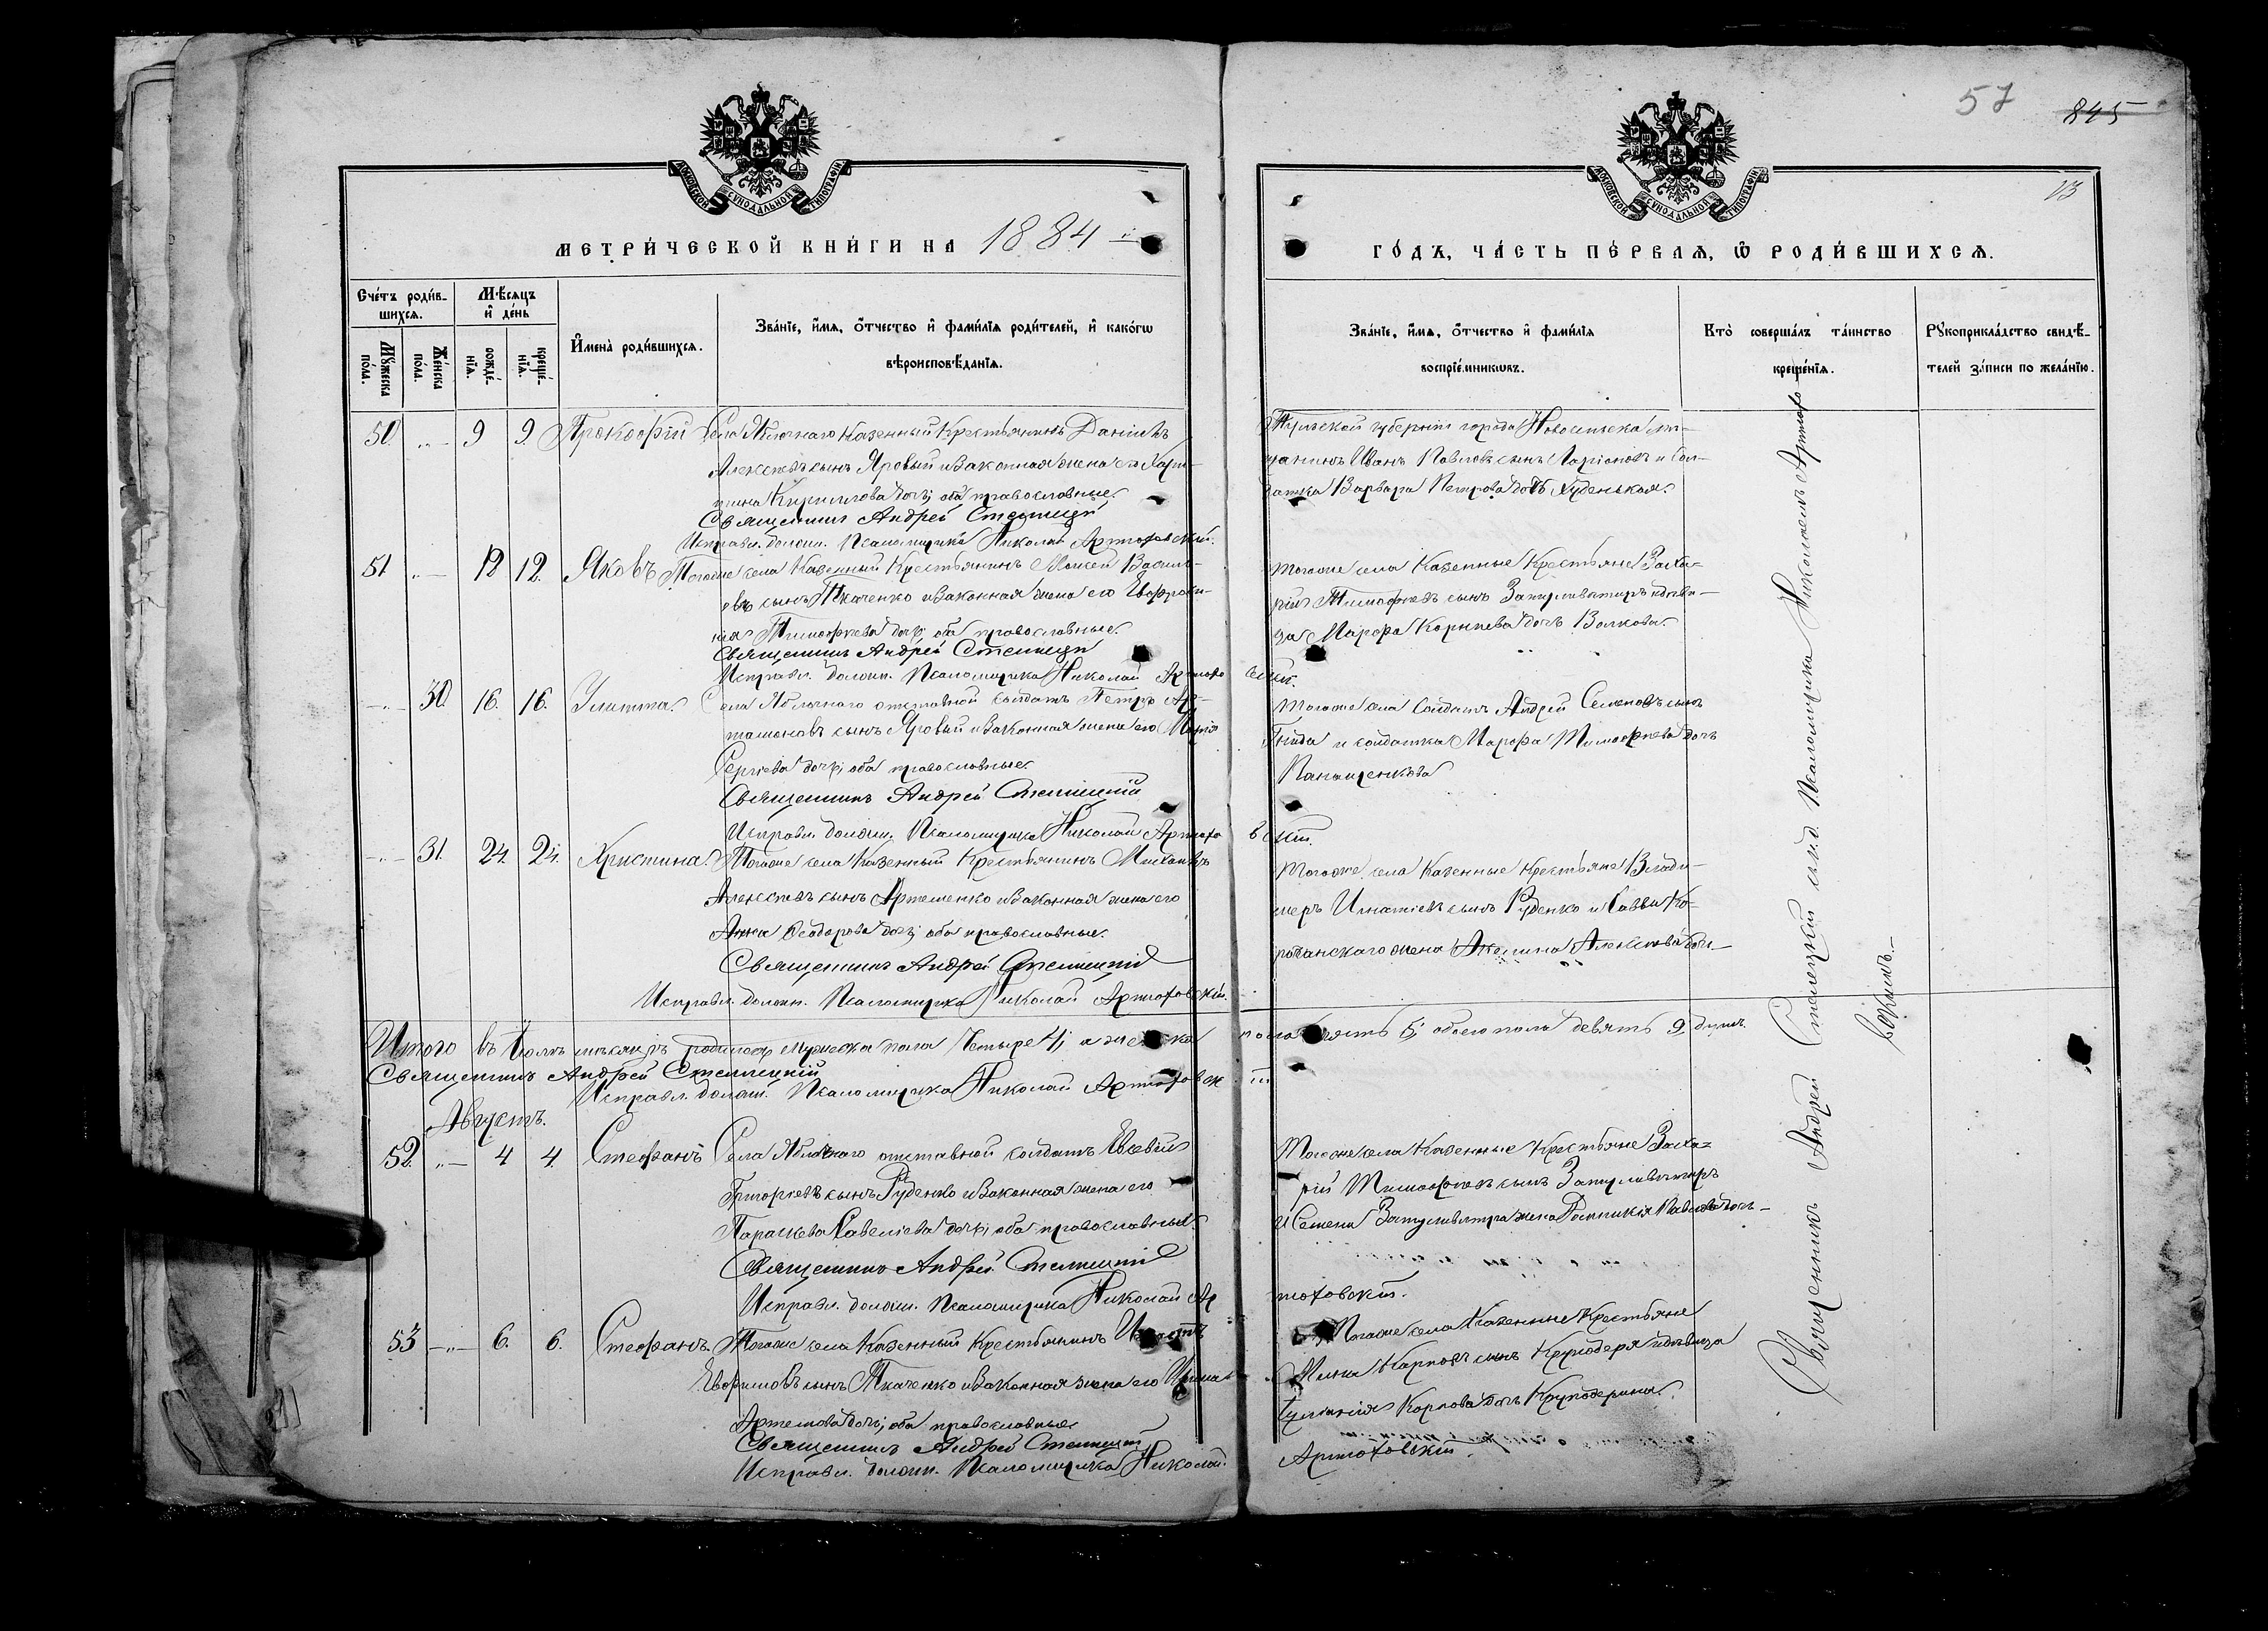 57 845
13
МОСКОВСКОЙ СѴНОДАЛЬНОЙ ТИПОГРАФІИ
МОСКОВСКОЙ СѴНОДАЛЬНОЙ ТИПОГРАФІИ
МЕТРИ́ЧЕСКОЙ КНИ́ГИ НА 1884
ГО́ДЪ, ЧА́СТЬ ПЕ́РВАЯ, Ѿ РОДИ́ВШИХСЯ.
Сче́тъ роди́в-
шихся.
Мꙋ́жеска по́ла.
Же́нска по́ла.
Мѣ́сяцъ и де́нь
рожде́-
нїя.
креще́-
нїя.
Имена̀ роди́вшихся.
Зва́нїе, и́мя, о́тчество и фами́лїя роди́телей, и како́гѡ
вѣроисповѣ́данїя.
Зва́нїе, и́мя, о́тчество и фами́лїя
воспрїе́мникѡвъ.
Кто̀ соверша́лъ та́инство
креще́нїя.
Рꙋкоприкла́дство свидѣ́-
телей за́писи по жела́нїю.
50. 9 9 Прокофій Села Яблочнаго казенный Крестьянинъ Даніилъ
Алексѣевъ сынъ Яровый и законная жена его Хари-
тина Кириллова дочь; оба православные.
Священникъ Андрей Стеллецкій
Исправл. должн. Псаломщика Николай Артюховскій.
Тульской губерніи города Новосильска мѣ-
щанинъ Иванъ Павловъ сынъ Ларіоновъ и Сол-
датка Варвара Петрова дочь Худенькая.
51 12 12. Яковъ Тогоже села Казенный Крестьянинъ Моисей Василь-
евъ сынъ Ткаченко и законная жена его Евфроси-
нія Тимофеева дочь; оба православные.
Священникъ Андрей Стеллецкій
Исправл. должн. Псаломщика Николай Артюховскій.
тогоже села Казенные Крестьяне Заха-
рій Тимофеевъ сынъ и дѣви-
ца Марфа Корнеева дочь Волкова.
30. 16. 16. Улитта. Села Яблочнаго отставной солдатъ Петръ Ар-
тамоновъ сынъ Яровый и законная жена его Марія
Сергіева дочь; оба православные.
Священникъ Андрей Стеллецкій
Исправл. должн. Псаломщика Николай Артюховскій.
тогоже села Солдатъ Андрей Семеновъ сынъ
Гнида и солдатка Марфа Тимофеева дочь
Панащенкова
31. 24. 24. Христина. Тогоже села Казенный Крестьянинъ Михаилъ
Алексѣевъ сынъ Артеменко и законная жена его
Анна Ѳеодорова дочь; оба православные.
Священникъ Андрей Стеллецкій
Исправл. должн. Псаломщика Николай Артюховскій.
тогоже села Казенные Крестьяне Влади-
меръ Игнатіевъ сынъ Руденко и Саввы Ко-
жена Акелина Алексѣева дочь
Итого въ Іюлѣ мѣсяцѣ родилося мужеска пола Четыре 4; а женска пола пять 5; обоего пола девять 9 душъ.
Священникъ Андрей Стеллецкій
Исправл. должн. Псаломщика Николай Артюховскій
Августъ.
52. 4 4. Стефанъ Села Яблочнаго отставной солдатъ Евсевій
Григоріевъ сынъ Руденко и законная жена его
Параскева Савеліева дочь; оба православные.
Священникъ Андрей Стеллецкій
Исправл. должн. Псаломщика Николай Артюховскій.
Тогоже села Казенные Крестьяне Заха-
рій Тимофеевъ сынъ
и Семена жена Домникія Павлова дочь
53 6. 6. Стефанъ. Тогоже села Казенный Крестьянинъ
Евфимовъ сынъ Ткаченко и законная жена его
Артемова дочь; оба православные
Священникъ Андрей Стеллецкій
Исправл. должн. Псаломщика Николай Артюховскій.
Тогоже села Казенные Крестьяне
Мина Карповъ сынъ Круподеря и дѣвица
Карпова дочь Круподерина.
Священникъ Андрей Стеллецкій съ и. д. Псаломщика Николаемъ Артюхо-
вскимъ.